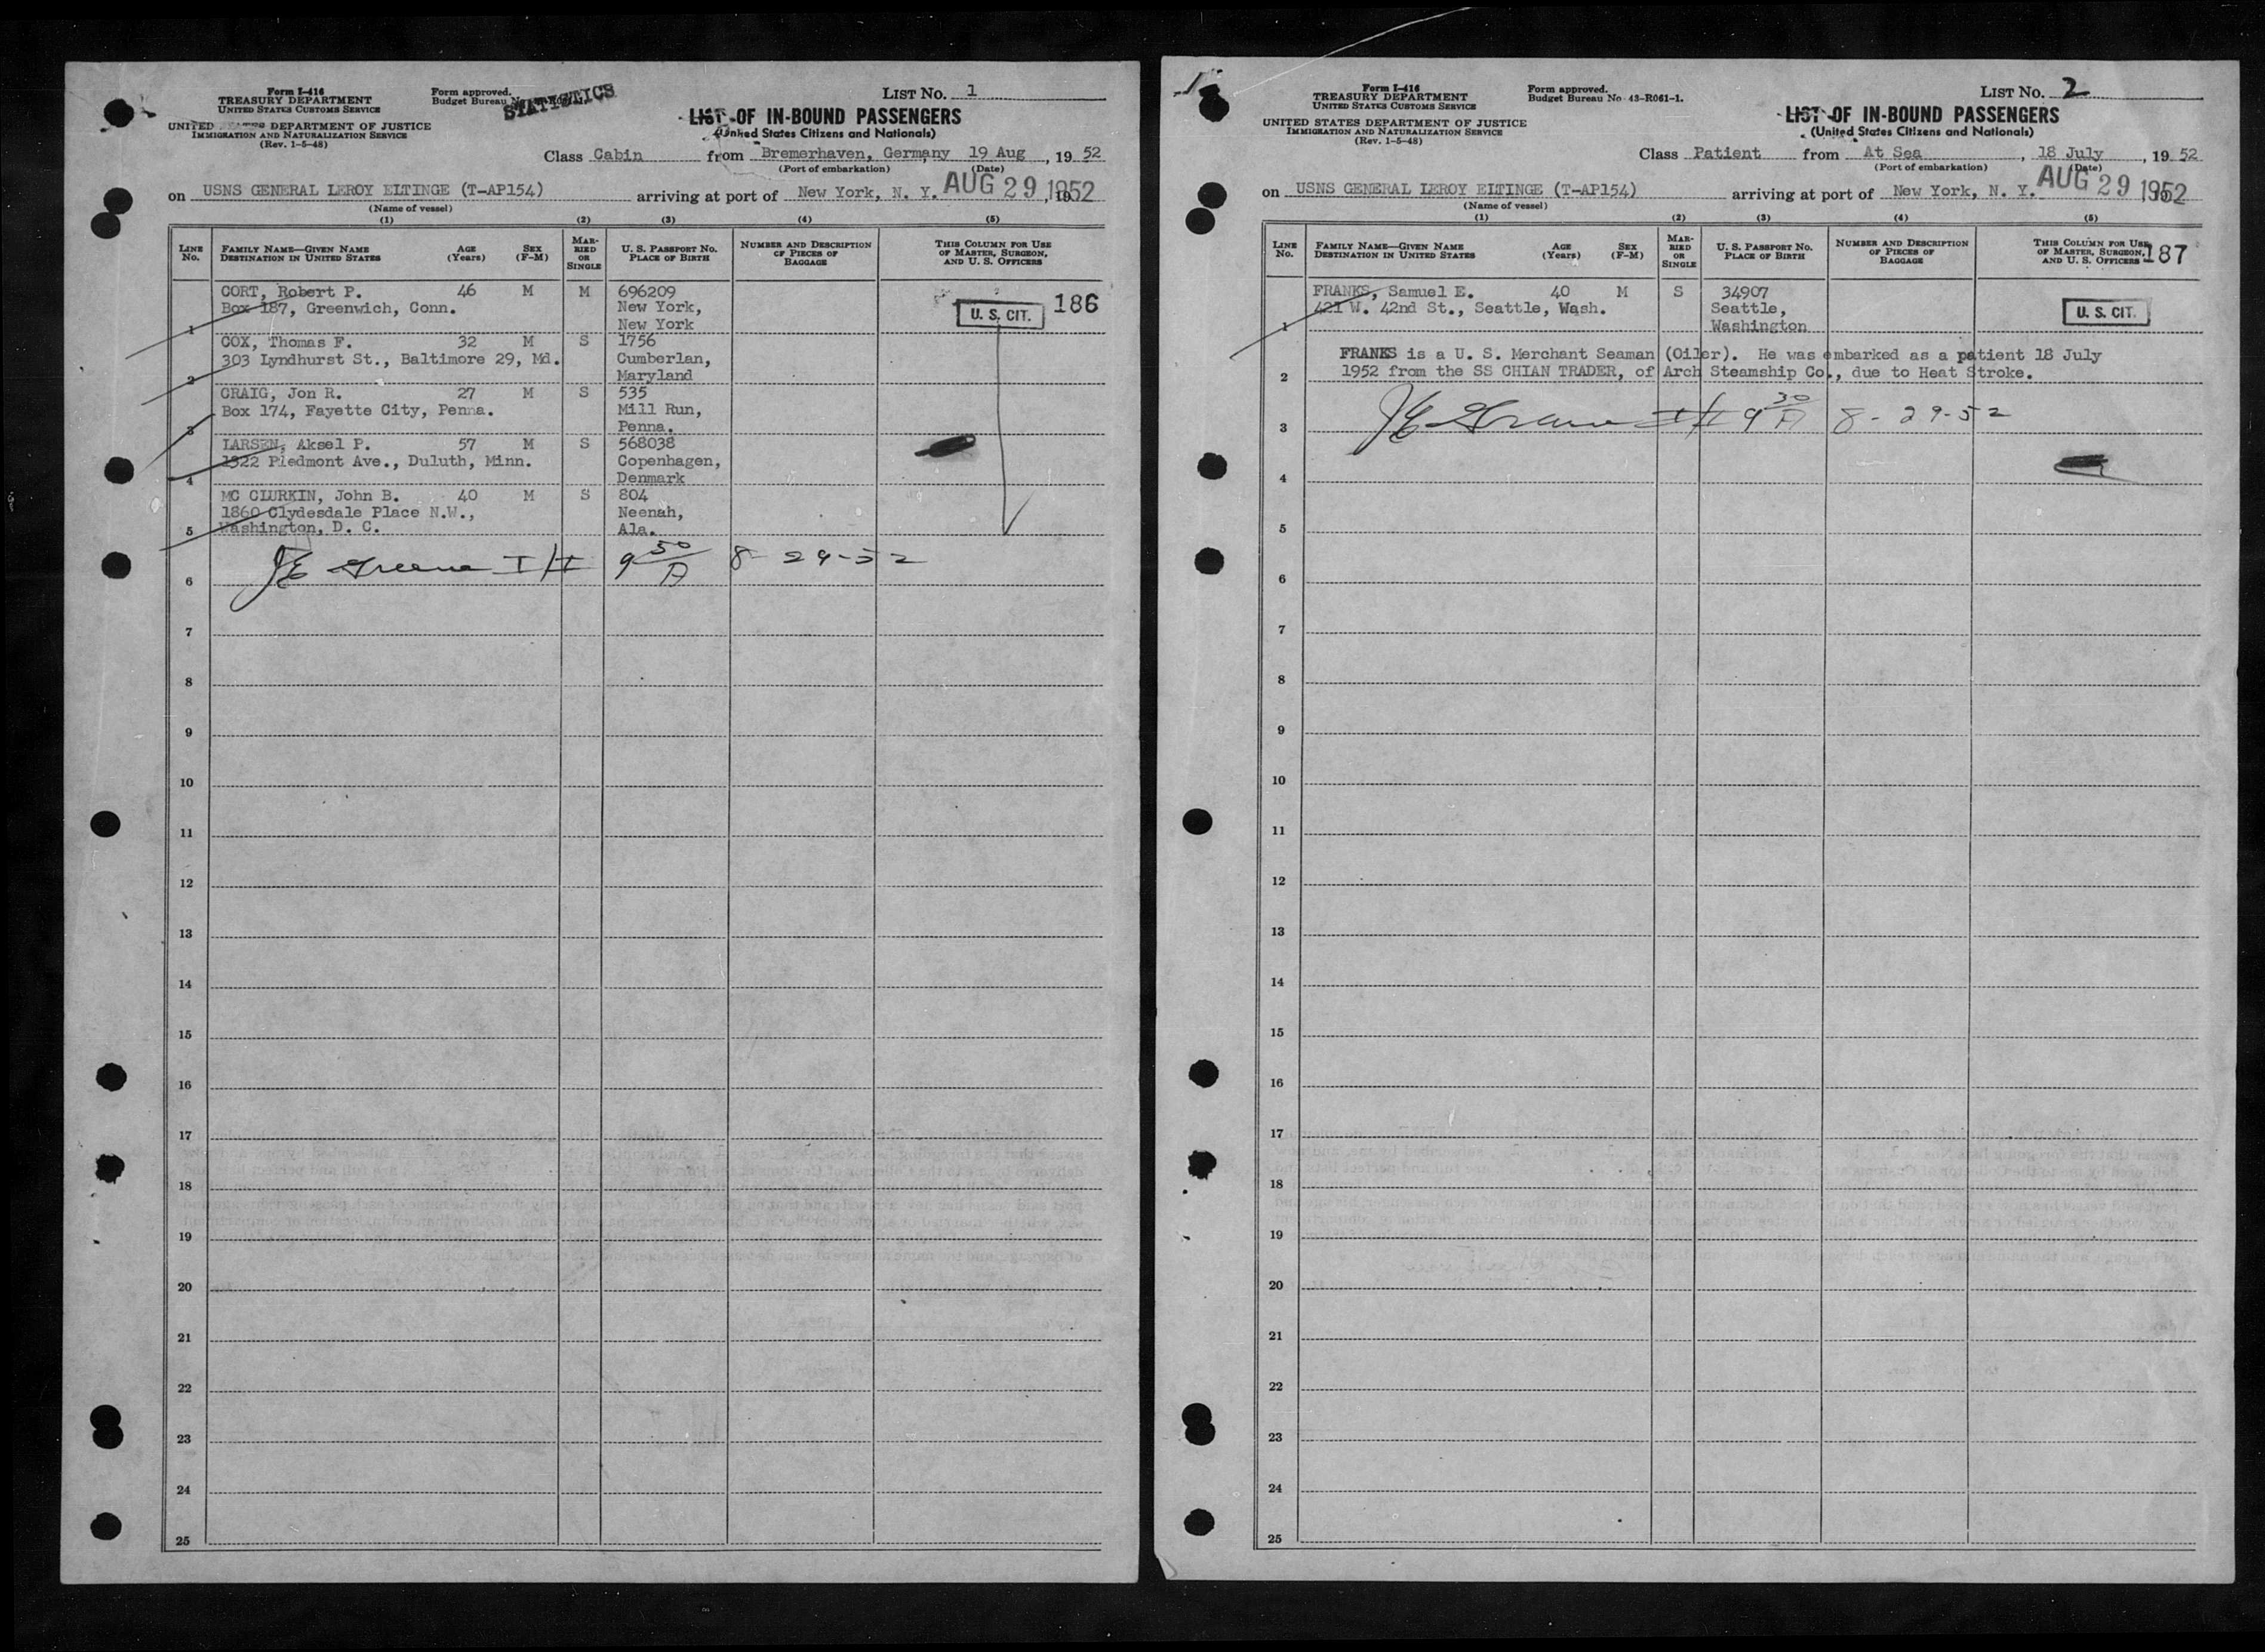 Form I-416
TREASURY DEPARTMENT
UNITED STATES CUSTOMS SERVICE
UNITED STATES DEPARTMENT OF JUSTICE
IMMIGRATION AND NATURALIZATION SERVICE
(Rev. 1-5-48)
Form approved.
Budget Bureau
STATISTICS
LIST No. 1
LIST OF IN-BOUND PASSENGERS
(United States Citizens and Nationals)
Class Cabin from Bremerhaven, Germany 19 Aug, 19 52
(Port of embarkation) (Date)
on USNS GENERAL LEROY ELTINGE (T-AP154) arriving at port of New York, N. Y. AUG 29 1952, 19
(Name of vessel)
(1) (2) (3) (4) (5)
LINE No. FAMILY NAME—GIVEN NAME DESTINATION IN UNITED STATES AGE (Years) SEX (F-M) MARRIED OR SINGLE U. S. PASSPORT No. PLACE OF BIRTH NUMBER AND DESCRIPTION OF PIECES OF BAGGAGE THIS COLUMN FOR USE OF MASTER, SURGEON, AND U. S. OFFICERS
CORT, Robert P. 46 M M 696209
Box 187, Greenwich, Conn. New York, U. S. CIT. 186
1 New York
COX, Thomas F. 32 M S 1756
303 Lyndhurst St., Baltimore 29, Md. Cumberlan,
2 Maryland
CRAIG, Jon R. 27 M S 535
Box 174, Fayette City, Penna. Mill Run,
3 Penna.
LARSEN, Aksel P. 57 M S 568038
1322 Piedmont Ave., Duluth, Minn. Copenhagen,
4 Denmark
MC CLURKIN, John B. 40 M S 804
1860 Clydesdale Place N.W., Neenah,
5 Washington, D. C. Ala.
JE Greene I/I 9 50 A 8-29-52
6
7
8
9
10
11
12
13
14
15
16
17
18
19
20
21
22
23
24
25
Form I-416
TREASURY DEPARTMENT
UNITED STATES CUSTOMS SERVICE
UNITED STATES DEPARTMENT OF JUSTICE
IMMIGRATION AND NATURALIZATION SERVICE
(Rev. 1-5-48)
Form approved.
Budget Bureau No. 43-R061-1.
LIST No. 2
LIST OF IN-BOUND PASSENGERS
(United States Citizens and Nationals)
Class Patient from At Sea, 18 July, 19 52
(Port of embarkation) (Date)
on USNS GENERAL LEROY ELTINGE (T-AP154) arriving at port of New York, N. Y. AUG 29 1952, 19
(Name of vessel)
(1) (2) (3) (4) (5)
LINE No. FAMILY NAME—GIVEN NAME DESTINATION IN UNITED STATES AGE (Years) SEX (F-M) MARRIED OR SINGLE U. S. PASSPORT No. PLACE OF BIRTH NUMBER AND DESCRIPTION OF PIECES OF BAGGAGE THIS COLUMN FOR USE OF MASTER, SURGEON, AND U. S. OFFICERS 187
FRANKS, Samuel E. 40 M S 34907
421 W. 42nd St., Seattle, Wash. Seattle, U. S. CIT.
1 Washington
FRANKS is a U. S. Merchant Seaman (Oiler). He was embarked as a patient 18 July
2 1952 from the SS CHIAN TRADER, of Arch Steamship Co., due to Heat Stroke.
3 JE Greene I/I 9 30 A 8-29-52
4
5
6
7
8
9
10
11
12
13
14
15
16
17
18
19
20
21
22
23
24
25